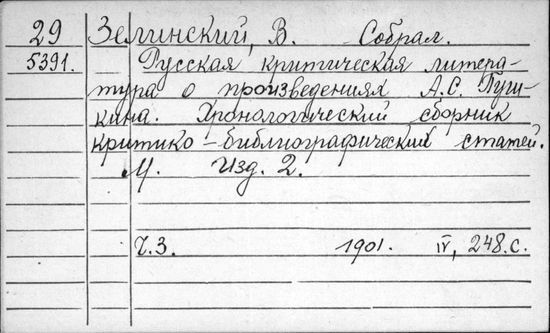 29 Зелинский, В. Собрал.
5391. Русская критическая литера-
тура о произведениях А.С. Пуш-
кина. Хронологический сборник
критико-библиографических статей.
М. Изд. 2.
Ч.3. 1901. IV, 248.с.